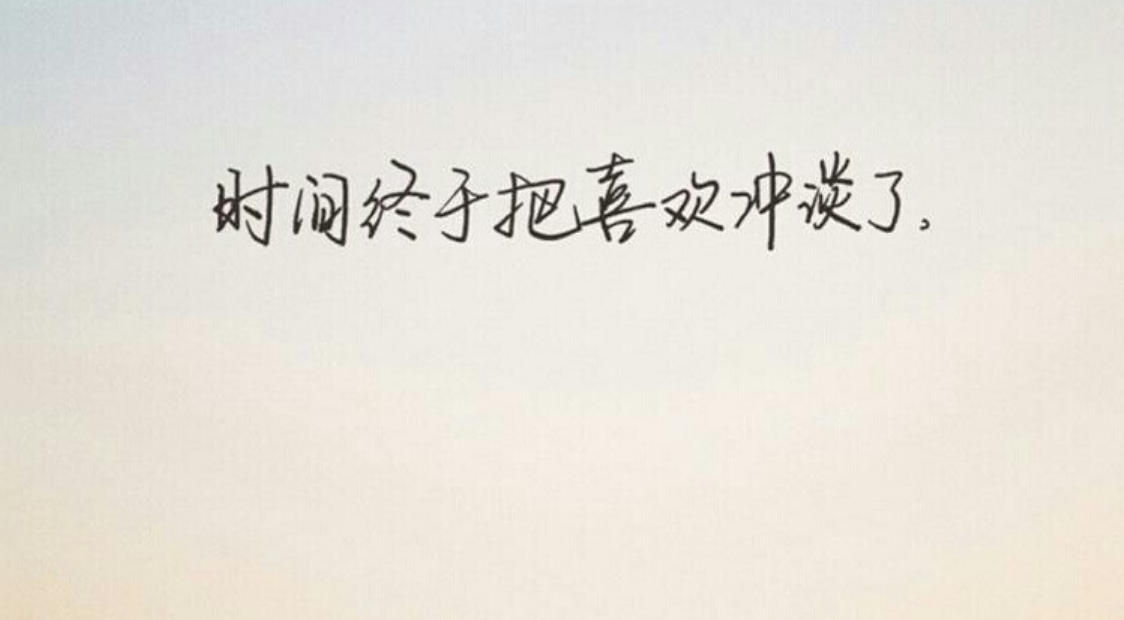 时间终于把喜欢冲谈了.